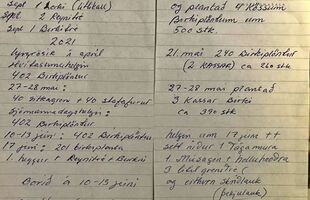 Sept 1 Birki (útkall)
Sept. 2 Reynitré
Sept 1 Birkitré
2021
í apríl
402 Birkiplöntur
27-28 mai:
40 sitkagreni + 40 stafafurur
Sjómannadagshelgin:
402 Birkiplöntur
10-13 júní: 402 Birkiplöntur
17 júní: 201 birkiplanta
1 heggur + Reynitré + Birkið
Borið á 10-13 júní
og plantað 4 kössum
Birkiplöntum um
500 stk.
21. mai 240 Birkiplöntur
(2 KASSAR) ca 260 stk
27-28 mai plantað
3 Kassar Birki
ca 390 stk
helgin um 17 júní
sett niður 1 Tögamura
1 Musagin + helluhnoðra
3 lítil grenitré
og eitthvað